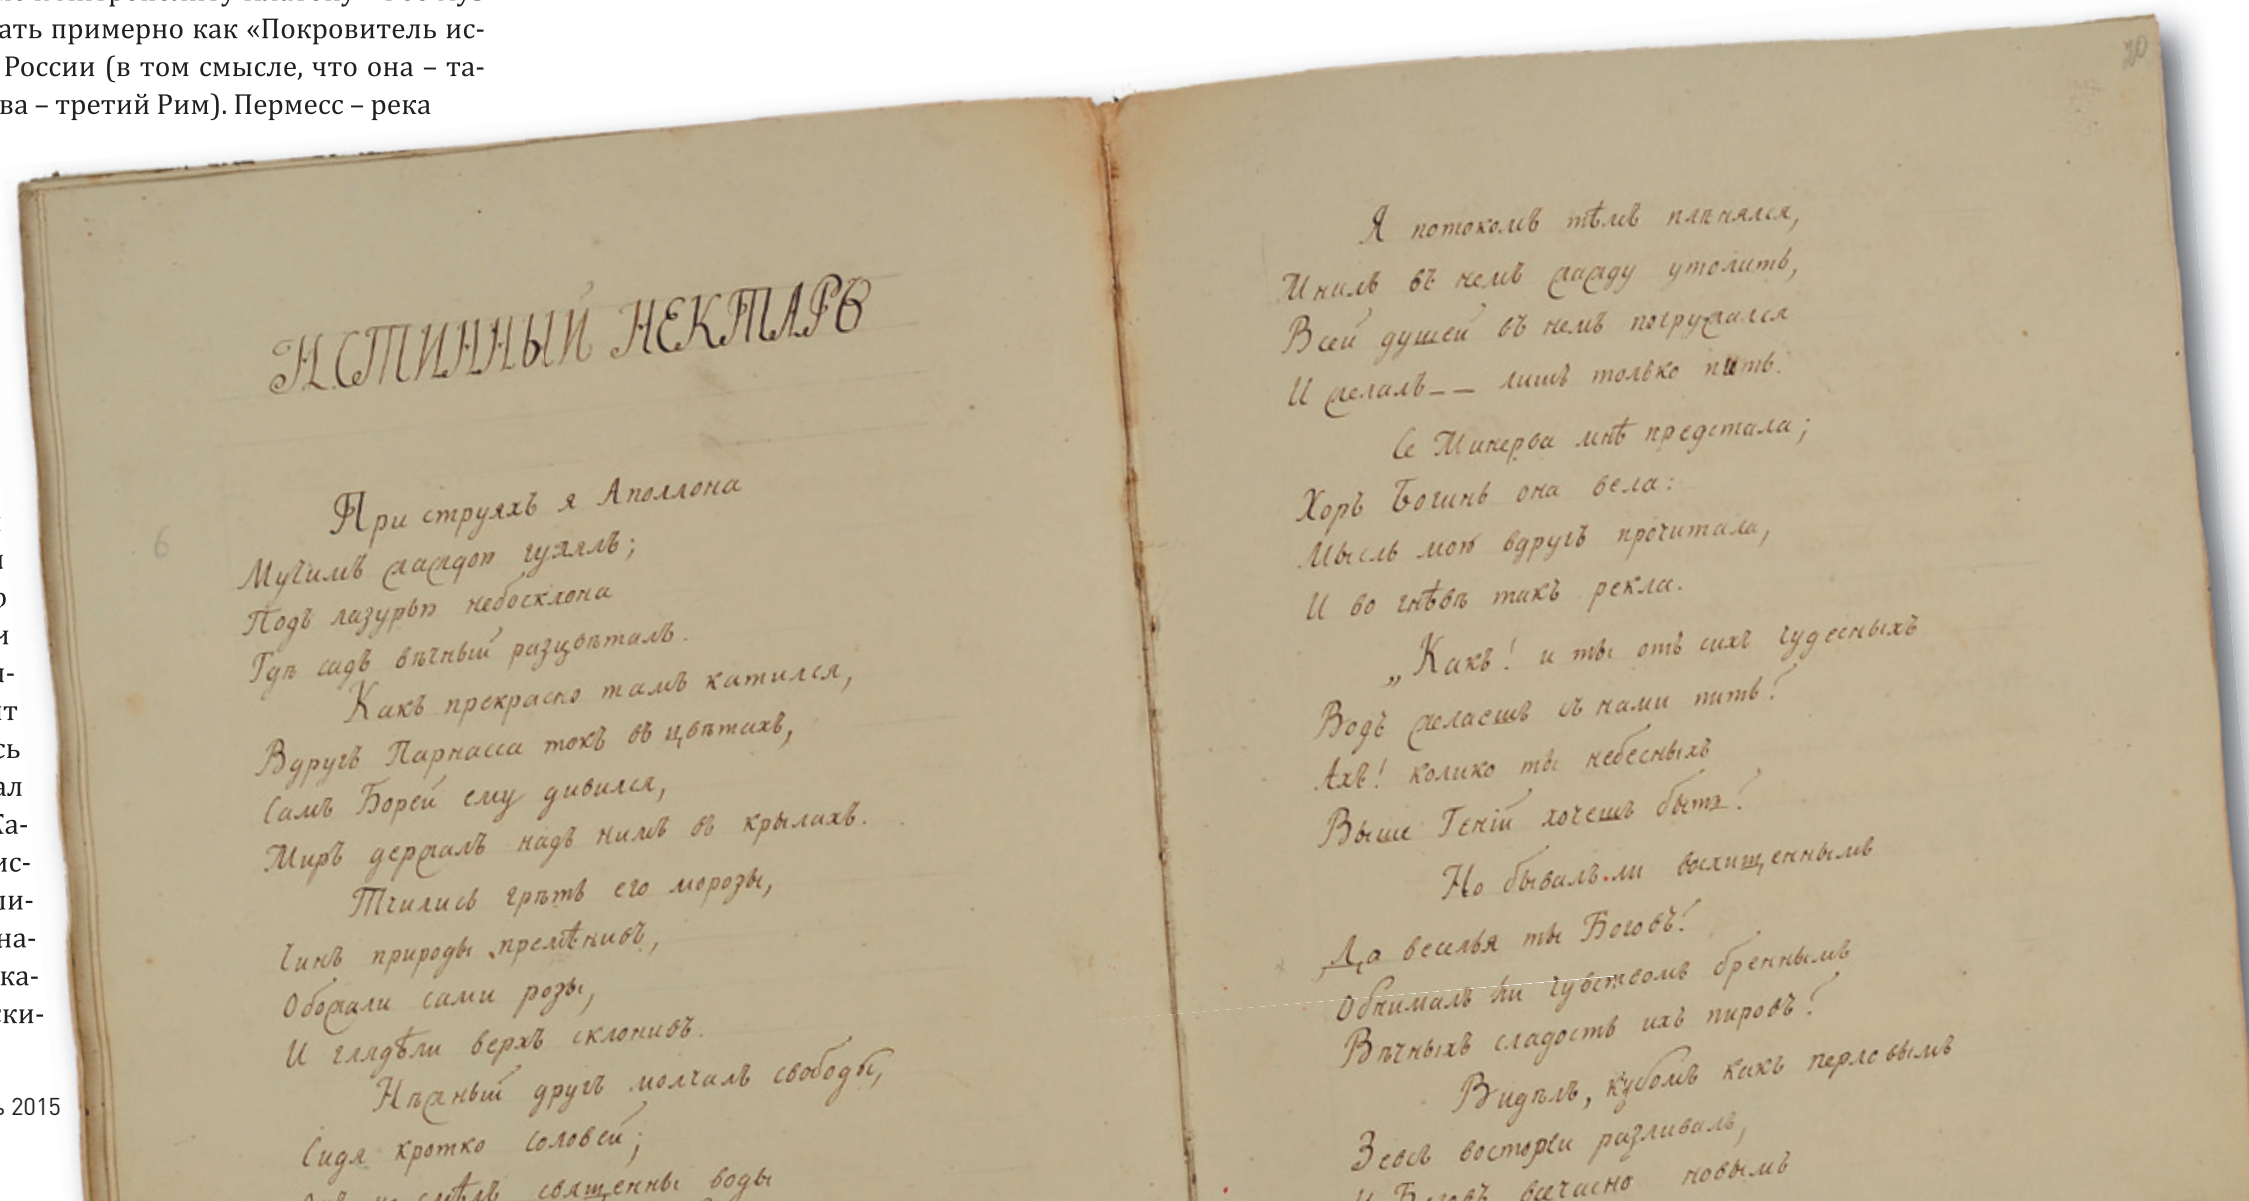 ать примерно как «Покровитель ис-
России (в том смысле, что она – та-
ва – третий Рим). Пермесс – река
и-
ит
сь
ал
Ка-
ис-
ли-
на-
ка-
ски-
ь 2015
6
ИСТИННЫЙ НЕКТАРЪ
При струяхъ я Аполлона
Мучимъ жаждою гулялъ;
Подъ лазурью небосклона
Гдѣ садъ вѣчный разцвѣталъ.
Какъ прекрасно тамъ катился,
Вдругъ Парнасса токъ въ цвѣтахъ,
Самъ Борей ему дивился,
Миръ держалъ надъ нимъ въ крылахъ.
Тчились грѣть его морозы,
Чинъ природы премѣнивъ,
Обожали сами розы,
И глядѣли верхъ склонивъ.
Нѣжный другъ молчалъ свободы,
Сидя кротко соловей;
священны воды
20
Я потокомъ тѣмъ плѣнялся,
Мнилъ въ немъ жажду утолить,
Всей душей въ немъ погружался
И желалъ-- лишь только пить.
Се Минерва мнѣ предстала;
Хоръ Богинь она вела:
Мысль мою вдругъ прочитала,
И во гнѣвѣ такъ рекла.
„Какъ! и ты отъ сихъ чудесныхъ
Водъ желаешь съ нами пить?
Ахъ! колико ты небесныхъ
Выше Геній хочешь быть?
Но бывалъ ли восхищеннымъ
До веселья ты Боговъ?
Обнималъ ли чувствомъ бреннымъ
Вѣчныхъ сладость ихъ пировъ?
Видѣлъ, кубомъ какъ перловымъ
Зевсъ восторги разливалъ,
И Боговъ всечасно новымъ